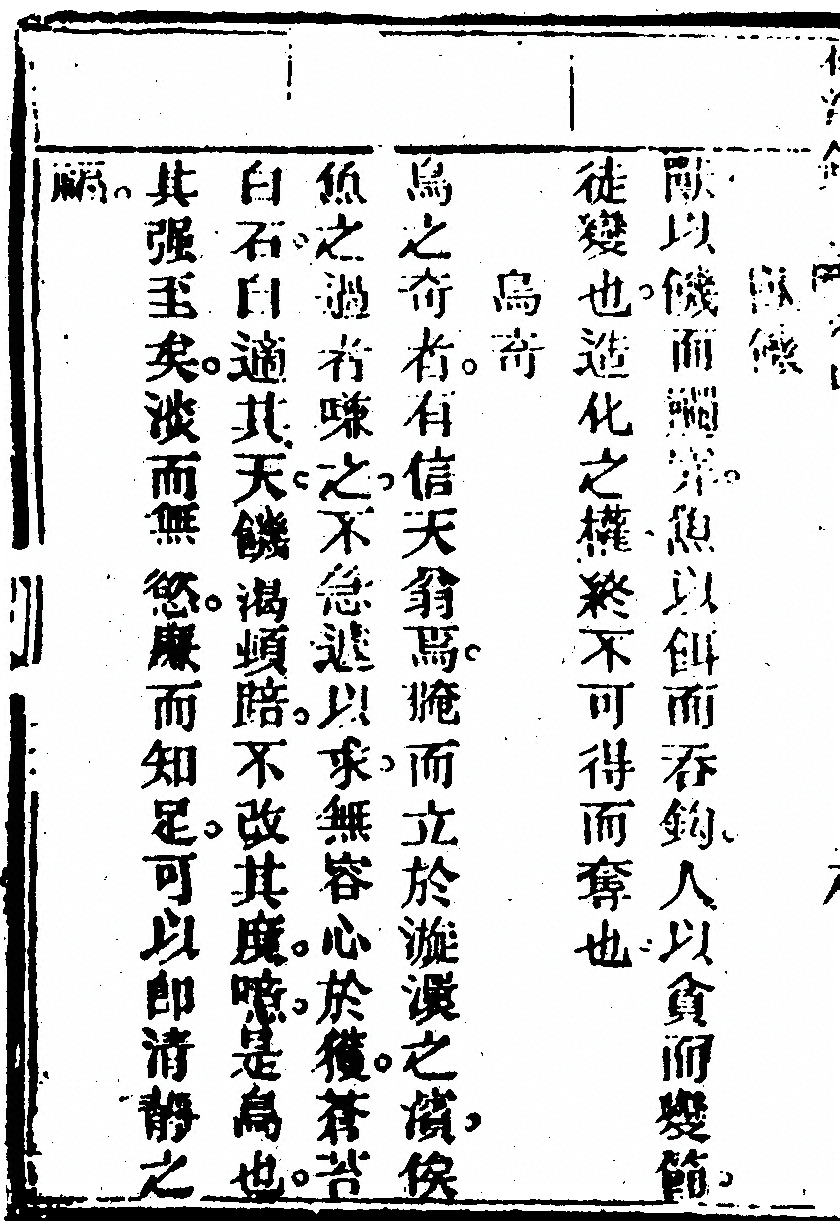 獸以饑而觸穽。魚以餌而吞鈎。人以貪而變節。
徒變也。造化之權終不可得而奪也。
鳥奇
鳥之奇者。有信天翁焉。晻而立於漩澳之濱。俟
魚之過者㗖之。不急遽以求。無容心於獲。蒼苔
白石。白適其天。饑渴頓踣。不改其度。噫。是鳥也。
其强至矣。淡而無慾。廉而知足。可以卽清靜之